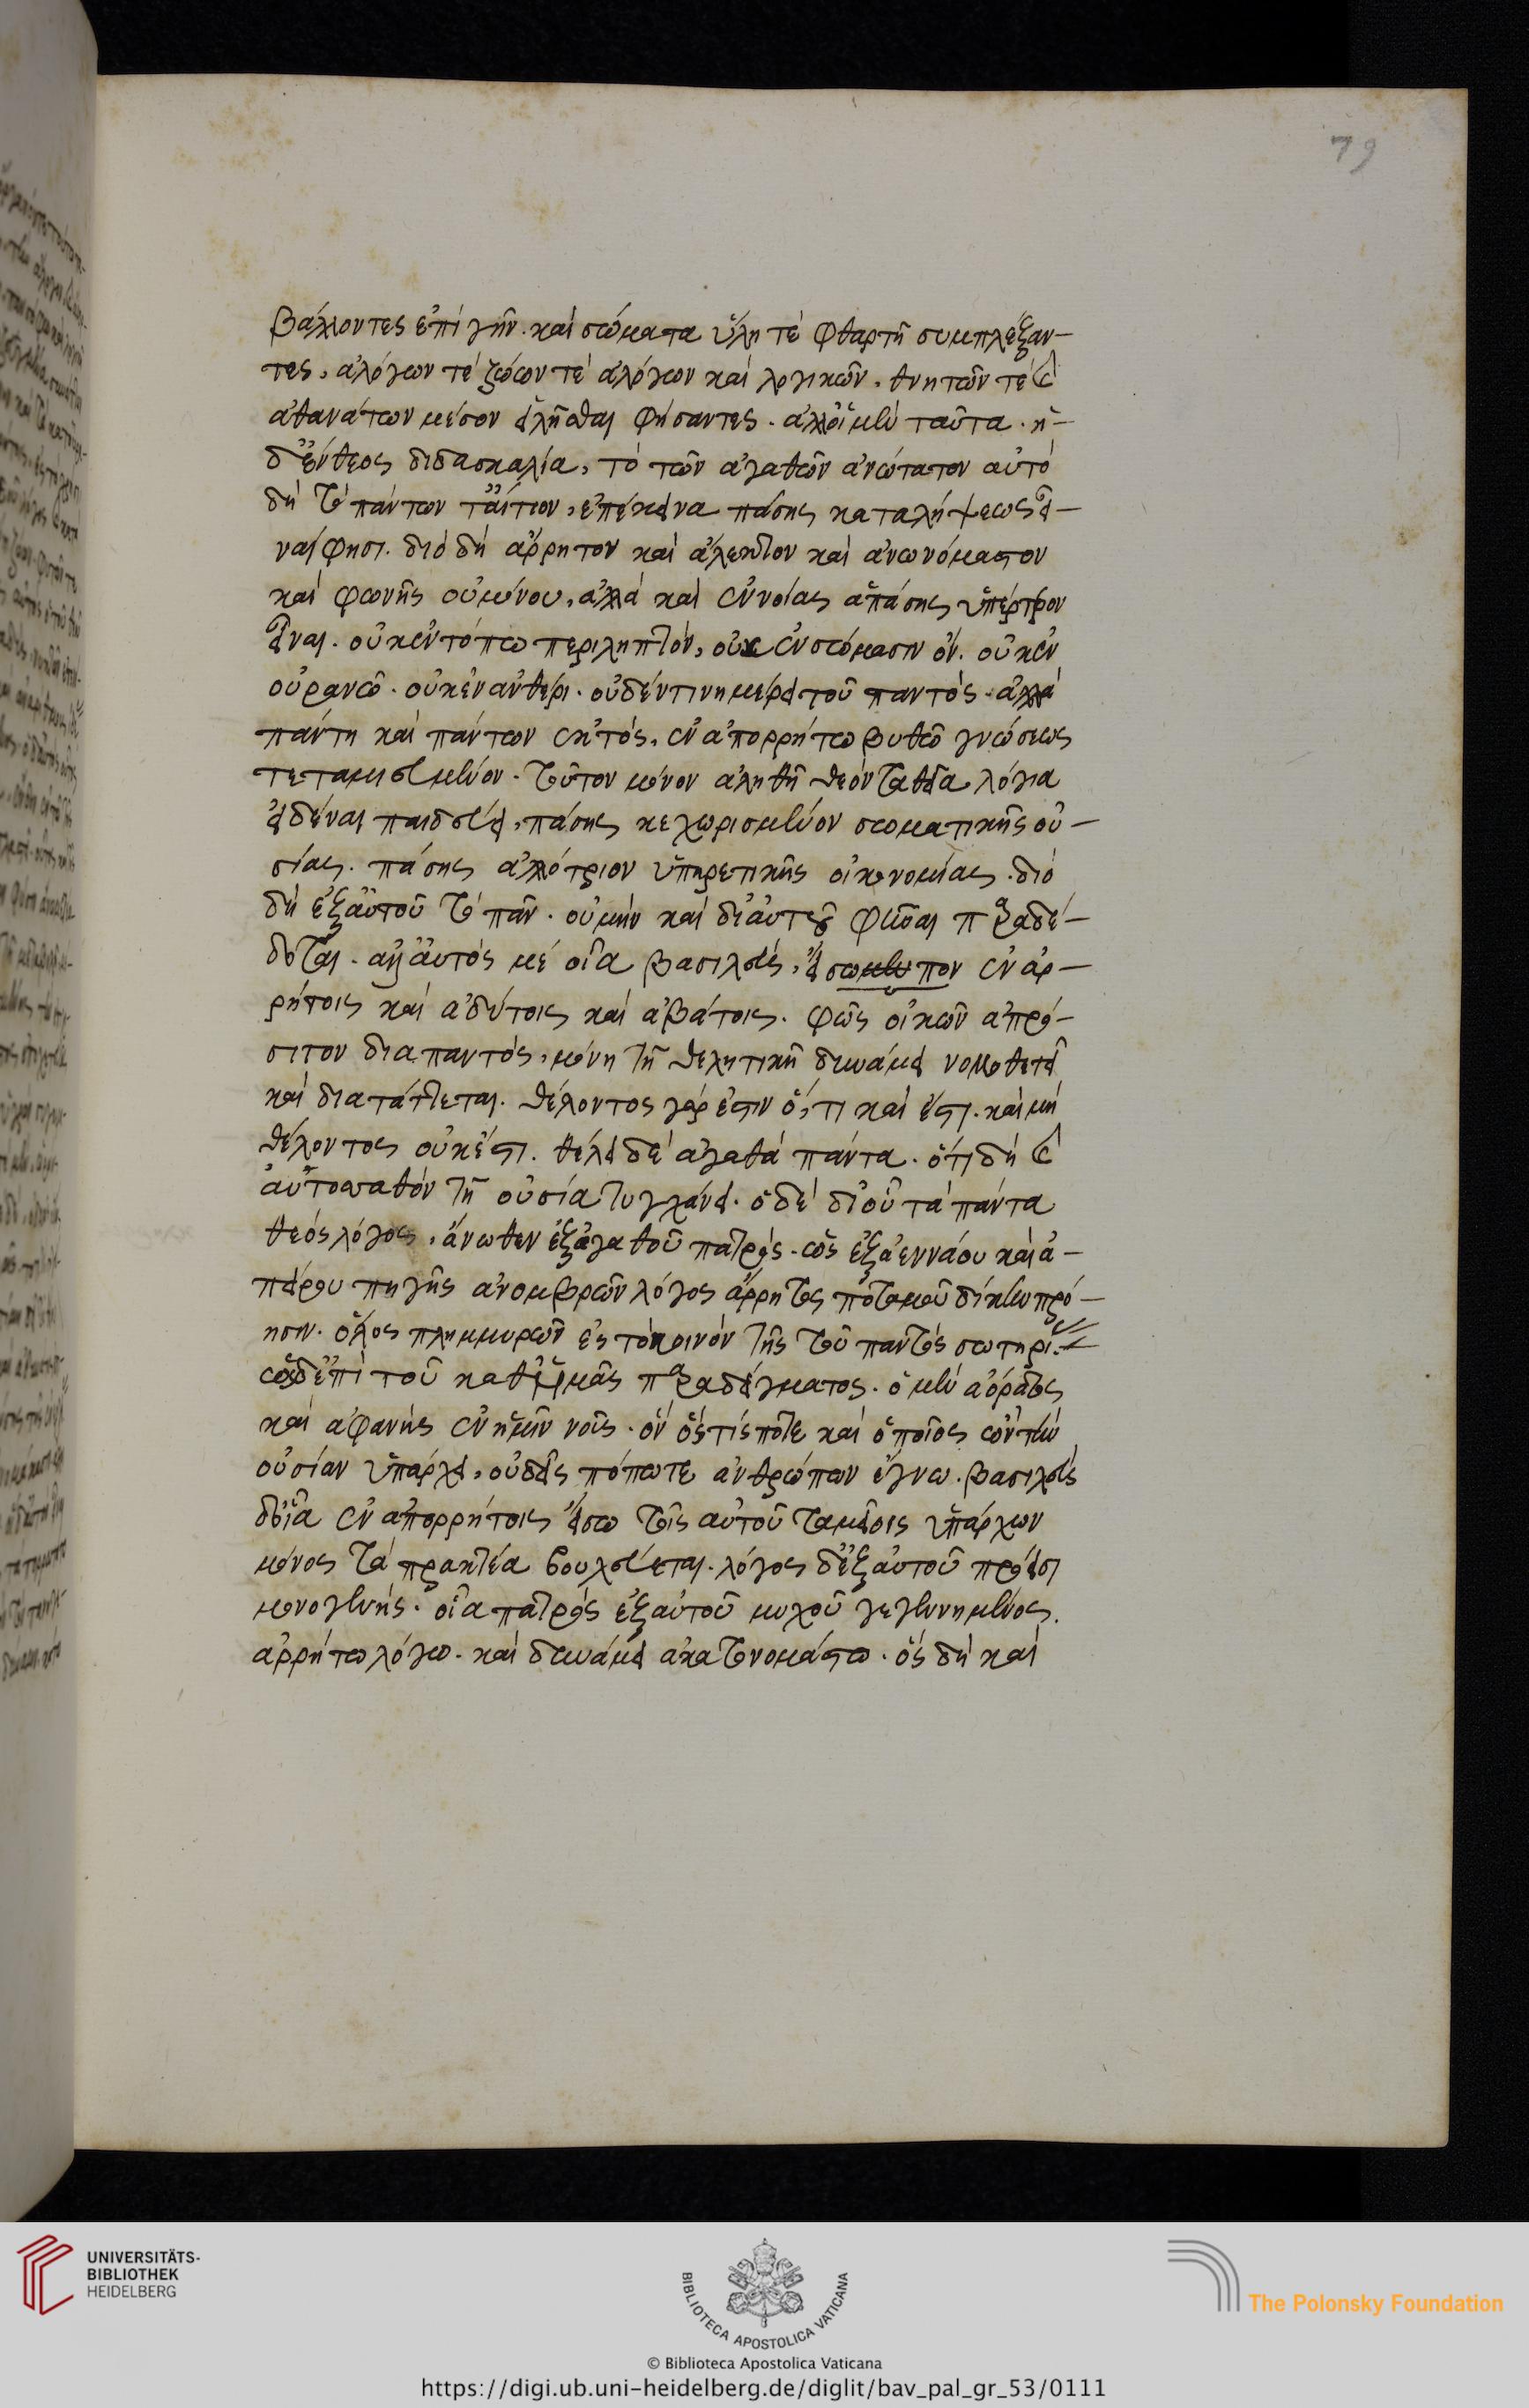 79
βάλλοντες ἐπὶ γῆν. καὶ σώματα ὕλη τὲ φθαρτῆ συμπλέξαν-
τες, ἀλόγων τὲ ζώων τὲ ἀλόγων καὶ λογικῶν, θνητῶν τὲ καὶ
ἀθανάτων μέσον εἰλῆσθαι φήσαντες. ἀλλ' οἱ μὲν ταῦτα. ἡ-
δ' ἔνθεος διδασκαλία, τὸ τῶν ἀγαθῶν ἀνώτατον αὐτὸ
δὴ τὸ πάντων τ' αἴτιον, ἐπέκεινα πάσης καταλήψεως εἶ-
ναι φησι. διὸ δὴ ἄρρητον καὶ ἄλεκτον καὶ ἀνωνόμαστον
καὶ φωνῆς οὐ μόνου, ἀλλὰ καὶ ἐννοίας ἁπάσης ὑπέρτερον
εἶναι. οὐκ ἐν τόπω περιληπτόν, οὐκ ἐν σώμασιν ὄν. οὐκ ἐν
οὐρανῶ. οὐκ ἐν αἰθέρι. οὐδ' ἔν τινι μέρει τοῦ παντός. ἀλλὰ
πάντη καὶ πάντων ἐκτός, ἐν ἀπορρήτω βυθῶ γνώσεως
τεταμιευμένον. τοῦτον μόνον ἀληθῆ θεὸν τὰ θεῖα λόγια
εἰδέναι παιδεύει, πάσης κεχωρισμένον σωματικῆς οὐ-
σίας. πάσης ἀλλότριον ὑπηρετικῆς οἰκονομίας. διὸ
δὴ ἐξ αὐτοῦ τὸ πᾶν. οὐ μὴν καὶ δι' αὐτοῦ φῦναι παραδέ-
δοται. ἀλλ' αὐτὸς μὲ οἷα βασιλεὺς, εἴσω που ἐν ἀρ-
ρήτοις καὶ ἀδύτοις καὶ ἀβάτοις. φῶς οἰκῶν ἀπρό-
σιτον διαπαντός, μόνη τῆ θελητικῆ δυνάμει νομοθετεῖ
καὶ διατάττεται. θέλοντος γάρ ἐστιν ὅ, τι καὶ ἔστι. καὶ μὴ
θέλοντος οὐκ ἔστι. θέλει δὲ ἀγαθὰ πάντα. ὅτι δὴ καὶ
αὐτοαγαθὸν τῆ οὐσία τυγχάνει. ὁ δὲ δι' οὗ τὰ πάντα
θεὸς λόγος, ἄνωθεν ἐξ ἀγαθοῦ πατρὸς. ὡς ἐξ ἀεννάου καὶ ἀ-
πείρου πηγῆς ἀνομβρῶν λόγος ἄρρητος ποταμοῦ δίκην πρό-
εισιν. ὅλος πλημμυρῶν εἰς τὸ κοινὸν τῆς τοῦ παντὸς σωτηρί-
ὡς δ' ἐπὶ τοῦ καθ' ἡμᾶς παραδείγματος. ὁ μὲν ἀόρατος
καὶ ἀφανὴς ἐν ἡμῖν νοῦς. ὃν ὅς τίς ποτε καὶ ὁποῖος ὢν τὴν
οὐσίαν ὑπάρχει, οὐδεὶς πόπωτε ἀνθρώπων ἔγνω. βασιλεὺς
δ' οἷα ἐν ἀπορρήτοις εἴσω τοῖς αὐτοῦ ταμείοις ὑπάρχων
μόνος τὰ πρακτέα βουλεύεται. λόγος δ' ἐξ αὐτοῦ πρόεισι
μονογενής. οἷα πατρὸς ἐξ αὐτοῦ μυχοῦ γεγεννημένος.
ἀρρήτω λόγω. καὶ δυνάμει ἀκατονομάστω. ὃς δὴ καὶ
UNIVERSITÄTS-
BIBLIOTHEK
HEIDELBERG
BIBLIOTECA APOSTOLICA VATICANA
© Biblioteca Apostolica Vaticana
The Polonsky Foundation
https://digi.ub.uni-heidelberg.de/diglit/bav_pal_gr_53/0111